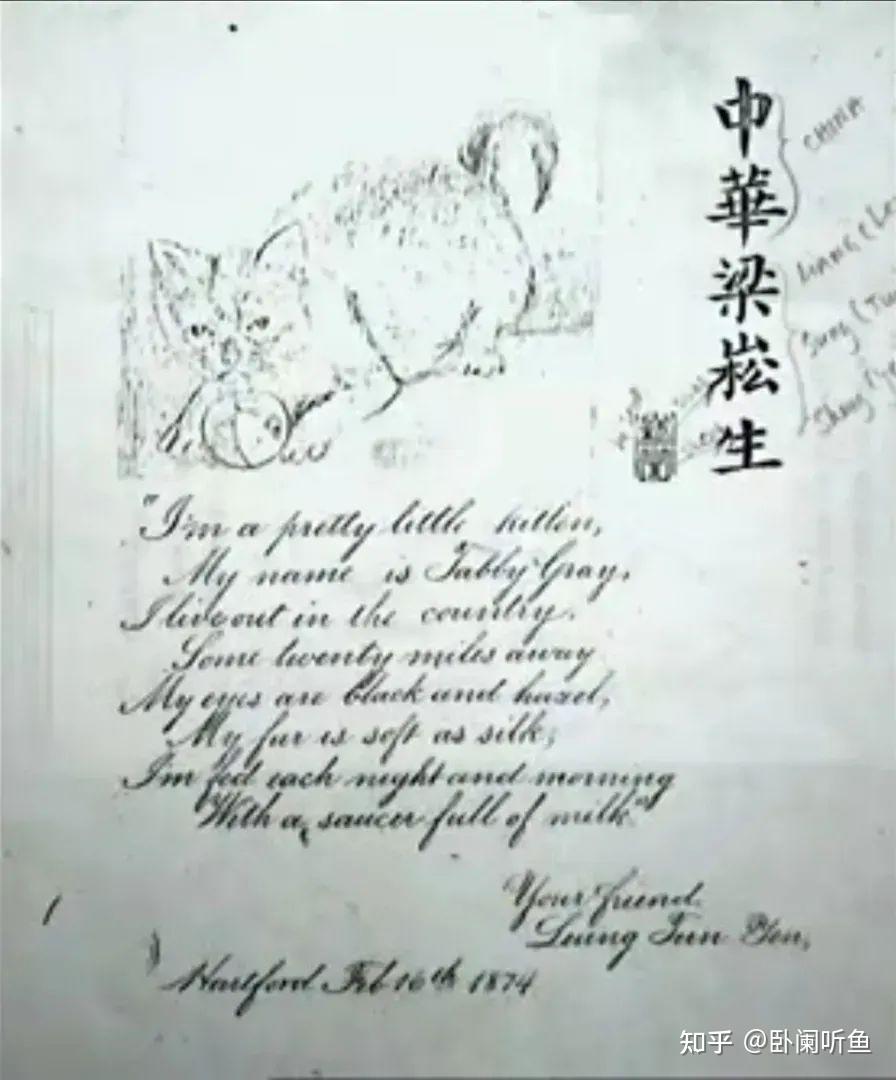 中華梁崧生
CHINA
Liang
Sung
Shang
"I'm a pretty little kitten,
My name is Tabby Gray.
I live out in the country.
Some twenty miles away
My eyes are black and hazel,
My fur is soft as silk;
I'm fed each night and morning
With a saucer full of milk."
Your friend.
Leung Tun Yen,
Hartford Feb 16th 1874
知乎 @卧阑听鱼